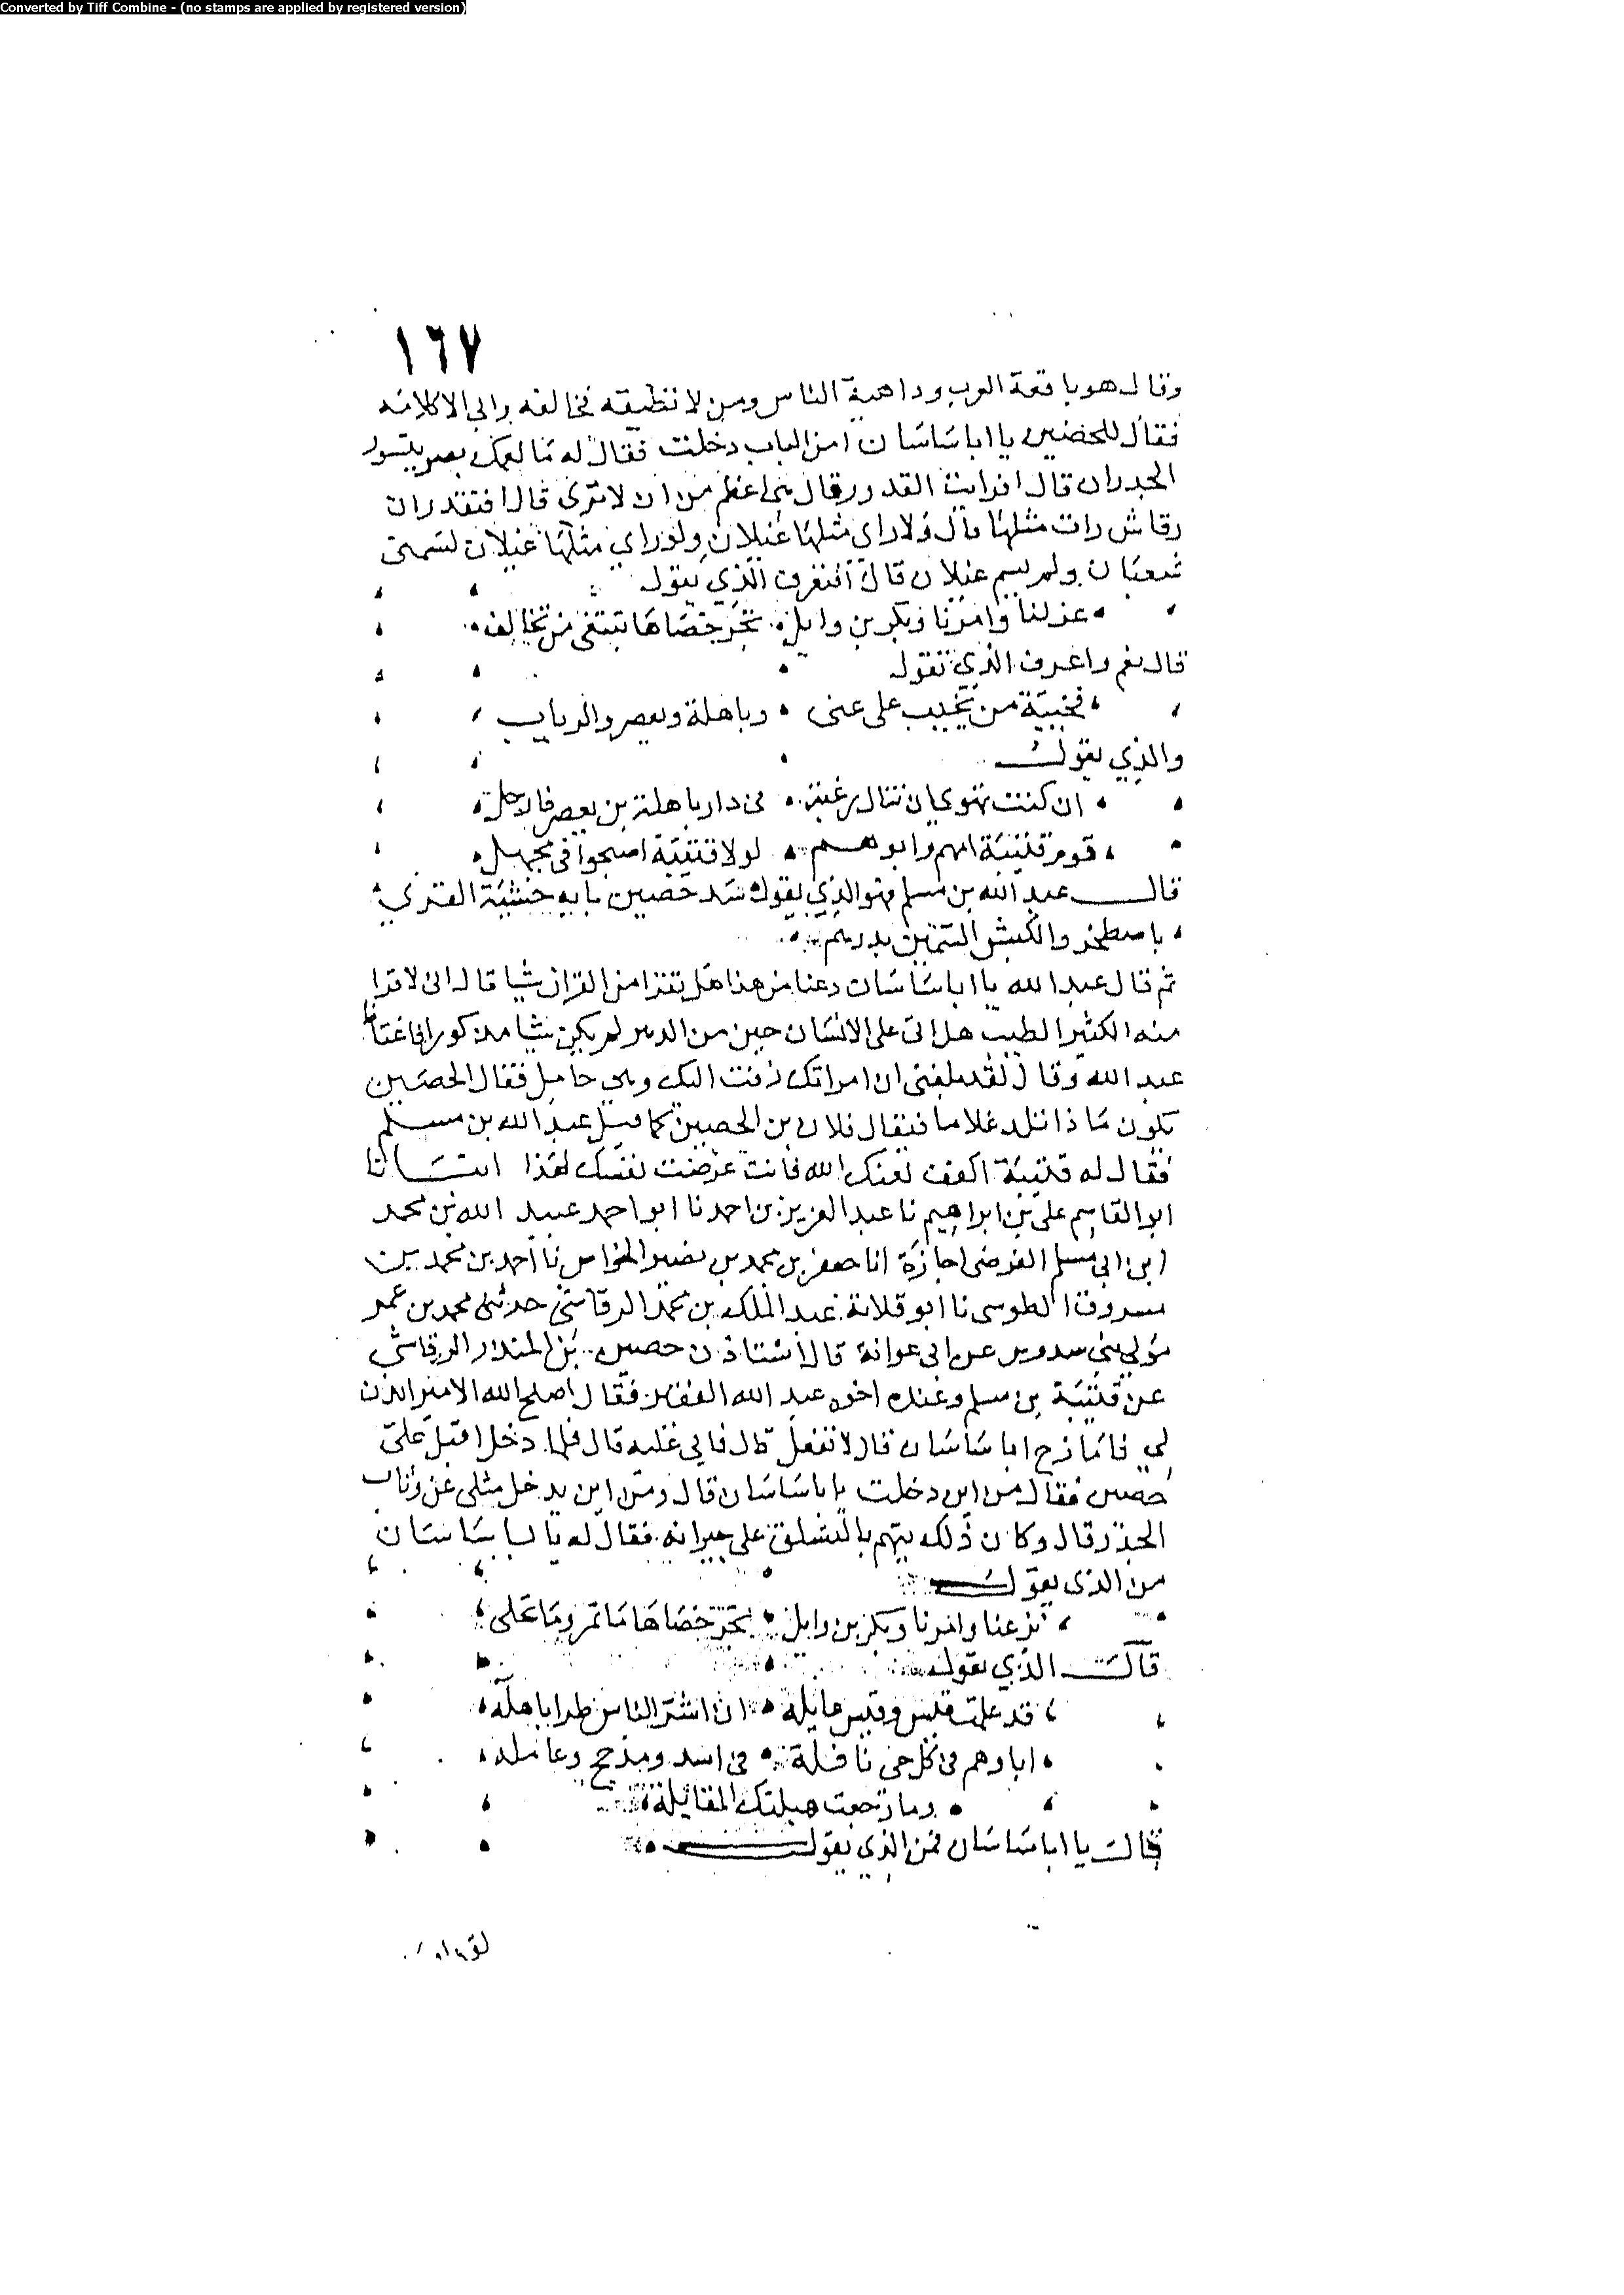 Converted by Tiff Combine - (no stamps are applied by registered version)
١٦٧
وقال هو باقعة العرب وداهية الناس ومن لا تطيقه فخالفه وابى الا كلامه
فقال للحضين يا ابا ساسان امن الباب دخلت فقال له ما لعمك بصر بتسور
الجدران قال افرايت القدور قال هي اعظم من ان لا ترى قال افتقدر ان
رقاش رات مثلها قال ولا راى مثلها عيلان ولو راي مثلها عيلان لسمى
شبعان ولم يسم عيلان قال افتعرف الذي يقول
عزلنا وامرنا وبكر بن وايل تجر خصاها تبتغى من تحالف
قال نعم واعرف الذي يقول
فخيبة من يخيب على غنى وباهلة ويعصر والرباب
والذي يقول
ان كنت تهوى ان تنال رغيبة فى دار باهلة بن يعصر فارحل
قوم قتيبة امهم وابوهم لولا قتيبة اصبحوا فى مجهل
قال عبد الله بن مسلم فهو الذي يقول شد حضين بابه خشية القرى
باصطخر والكبش السمين بدرهم
ثم قال عبد الله يا ابا ساسان دعنا من هذا هل تقرا من القران شيا قال انى لاقرا
منه الكثير الطيب هل اتى على الانسان حين من الدهر لم يكن شيا مذكورا فاغتاظ
عبد الله وقال لقد بلغنى ان امراتك زفت اليك وهي حامل فقال الحصين
يكون ماذا تلد غلاما فيقال فلان بن الحصين كما قيل عبد الله بن مسلم
فقال له قتيبة اكفف لعنك الله فانت عرضت نفسك لهذا انبانا
ابو القاسم على بن ابراهيم نا عبد العزيز بن احمد نا ابو احمد عبيد الله بن محمد
ابن ابي مسلم الفرضى اجازة انا جعفر بن محمد بن نصير الخواص نا احمد بن محمد بن
مسروق الطوسى نا ابو قلابة عبد الملك بن محمد الرقاشي حدثنى محمد بن عمر
مولي بني سدوس عن ابى عوانة قال استاذن حصين بن المنذر الرقاشي
عن قتيبة بن مسلم وعنده اخوه عبد الله الفقير فقال اصلح الله الامير ايذن
لي فامازح ابا ساسان قال لا تفعل قال فابي عليه قال فلما دخل اقبل على
حصين فقال من اين دخلت يا با ساسان قال ومن اين يدخل مثلى عن
الجدر قال وكان ذلك يتهم بالتسلق على جيرانه فقال له يا ابا ساسان
من الذى يقول
نزعنا وامرنا وبكر بن وايل تجر خصاها ما تمر وما تحلى
قال الذي يقول
قد علمت قيس وقيس عايله ان اشر الناس طرا باهلة
اباوهم فى كل حى نافلة فى اسد ومذحج وعامله
وما هبلتك القايلة
قال يا ابا ساسان فمن الذي يقول